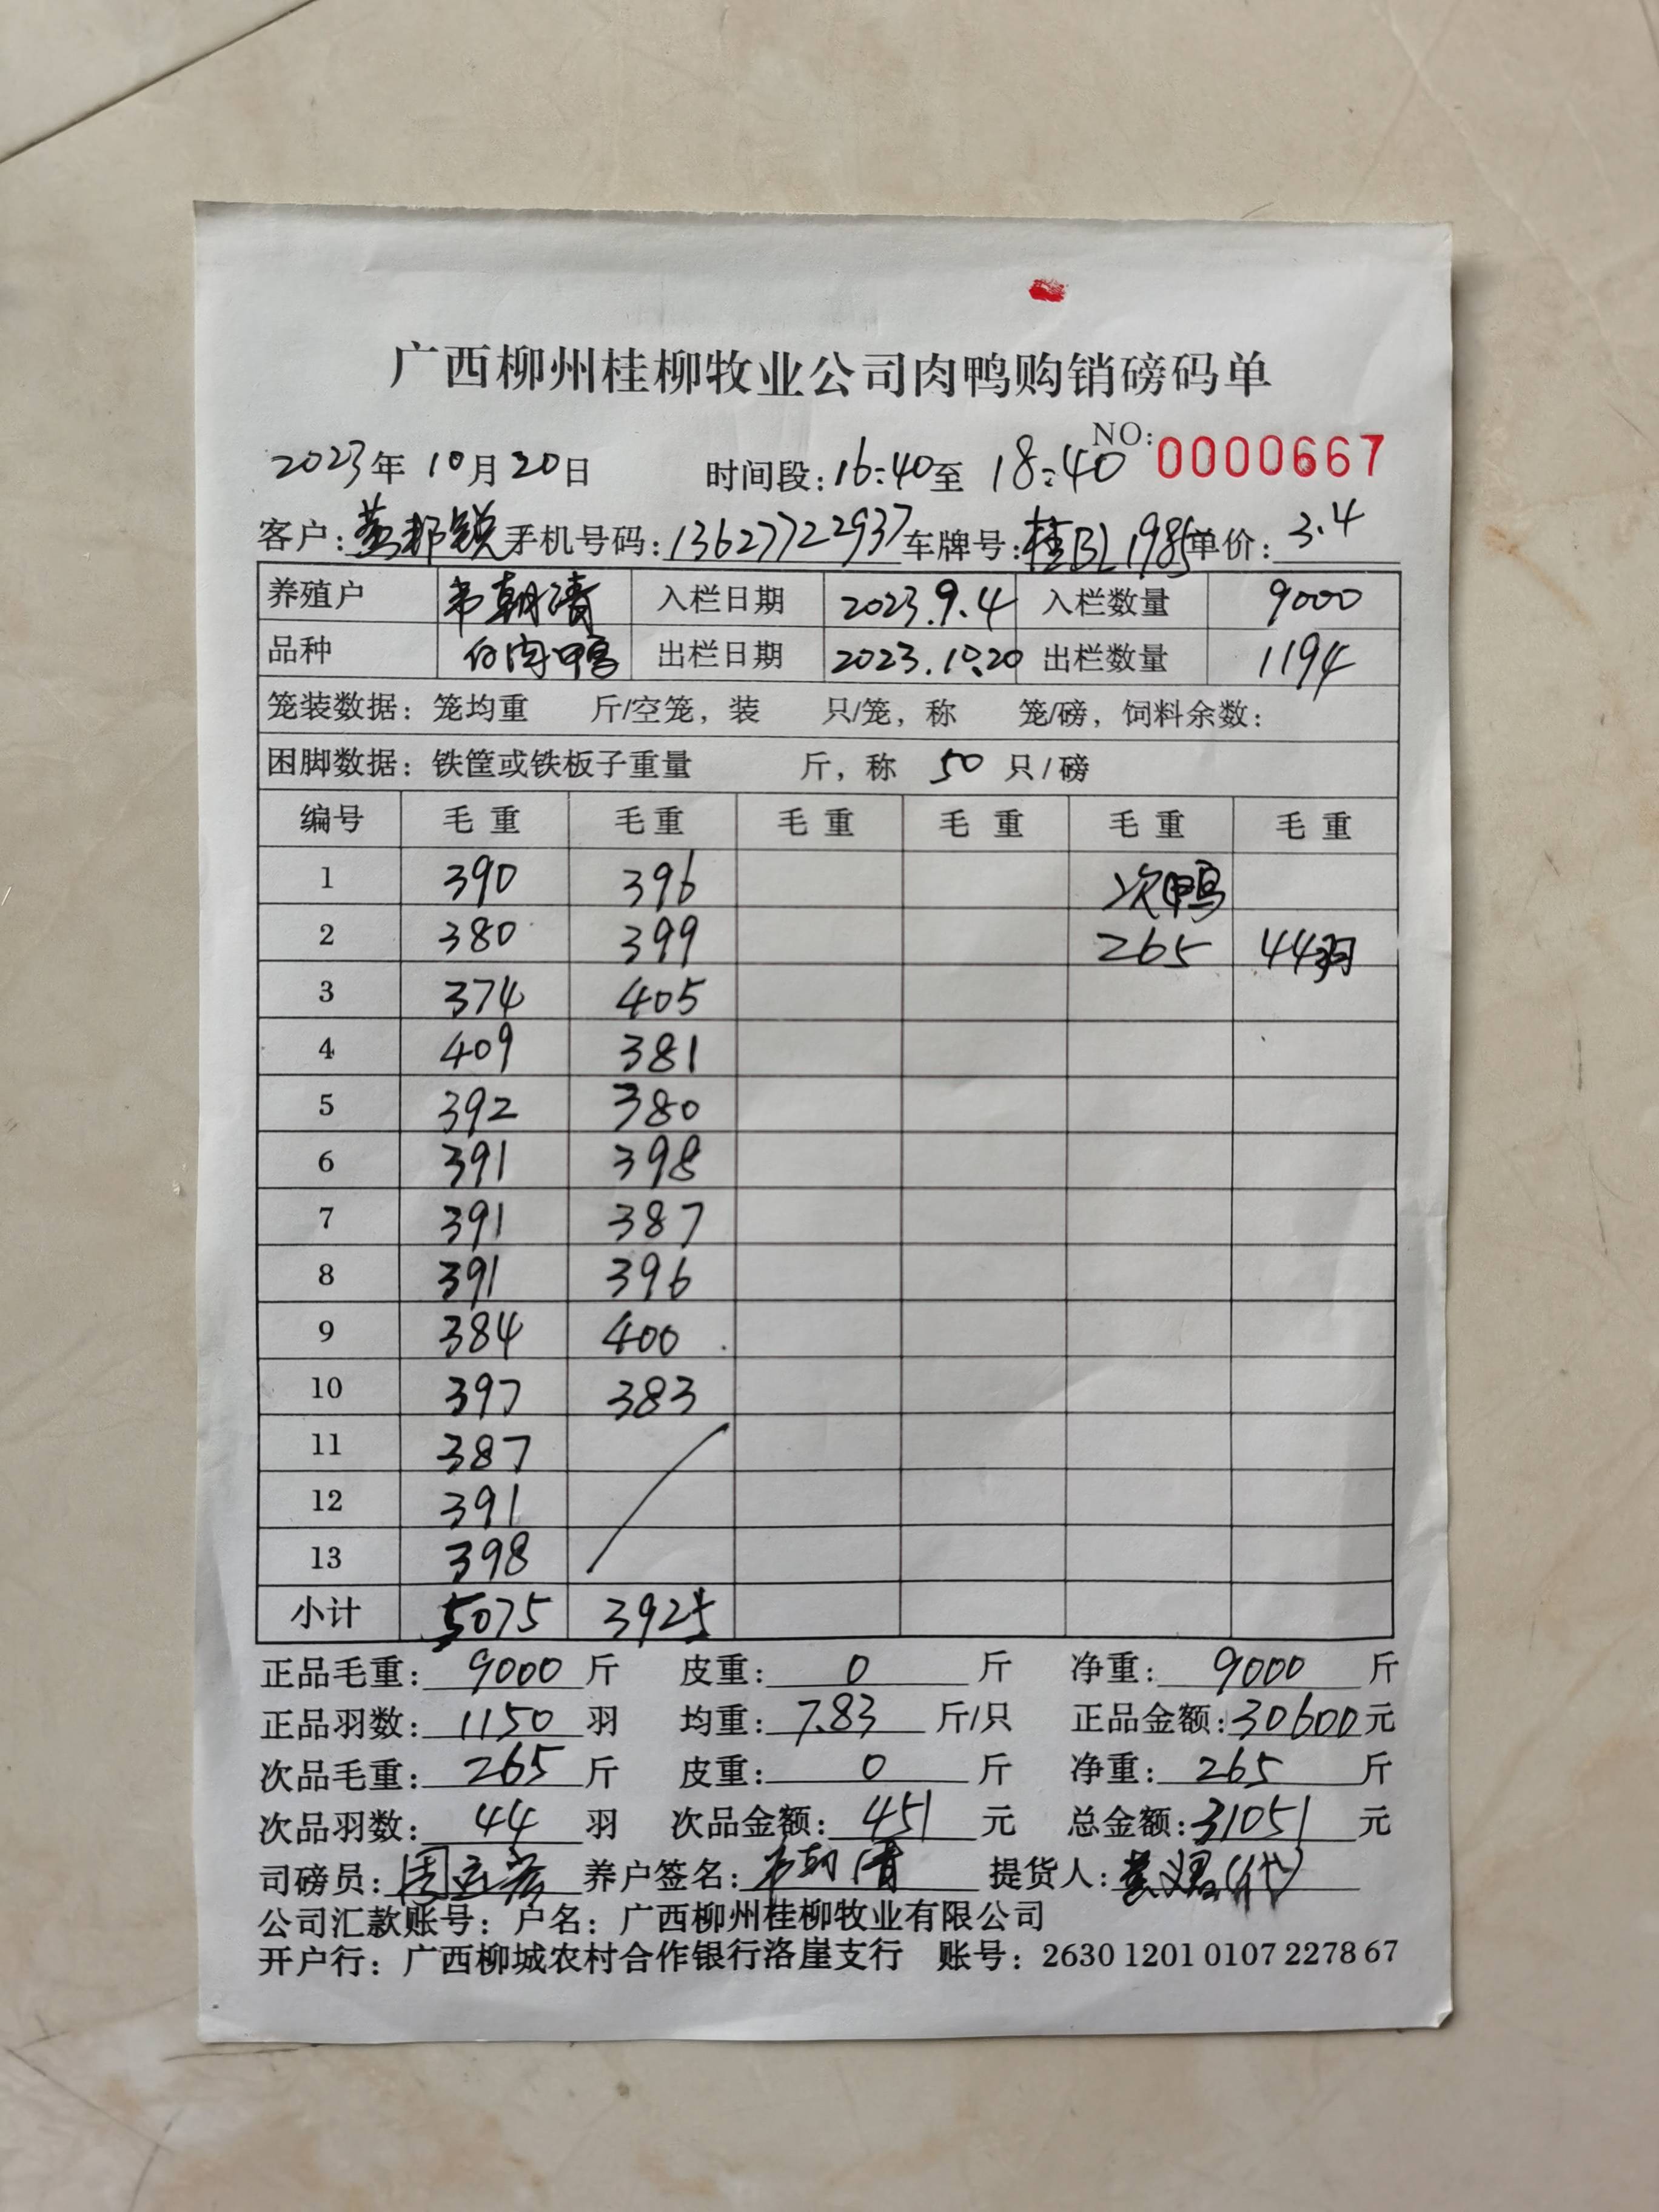 广西柳州桂柳牧业公司肉鸭购销磅码单
NO: 0000667
2023年 10月 20日 时间段: 16:40至 18:40
客户: 黄邦锐 手机号码: 13627722937 车牌号: 桂BL1985 单价: 3.4
养殖户 韦朝清 入栏日期 2023.9.4 入栏数量 9000
品种 白肉鸭 出栏日期 2023.10.20 出栏数量 1194
笼装数据: 笼均重 斤/空笼, 装 只/笼, 称 笼/磅, 饲料余数:
困脚数据: 铁筐或铁板子重量 斤, 称 50 只/磅
编号 毛重 毛重 毛重 毛重 毛重 毛重
1 390 396 次鸭
2 380 399 265 44羽
3 374 405
4 409 381
5 392 380
6 391 398
7 391 387
8 391 396
9 384 400
10 397 383
11 387
12 391
13 398
小计 5075 3925
正品毛重: 9000 斤 皮重: 0 斤 净重: 9000 斤
正品羽数: 1150 羽 均重: 7.83 斤/只 正品金额: 30600元
次品毛重: 265 斤 皮重: 0 斤 净重: 265 斤
次品羽数: 44 羽 次品金额: 451 元 总金额: 31051 元
司磅员: 养户签名: 韦朝清 提货人: (代)
公司汇款账号: 户名: 广西柳州桂柳牧业有限公司
开户行: 广西柳城农村合作银行洛崖支行 账号: 2630 1201 0107 2278 67